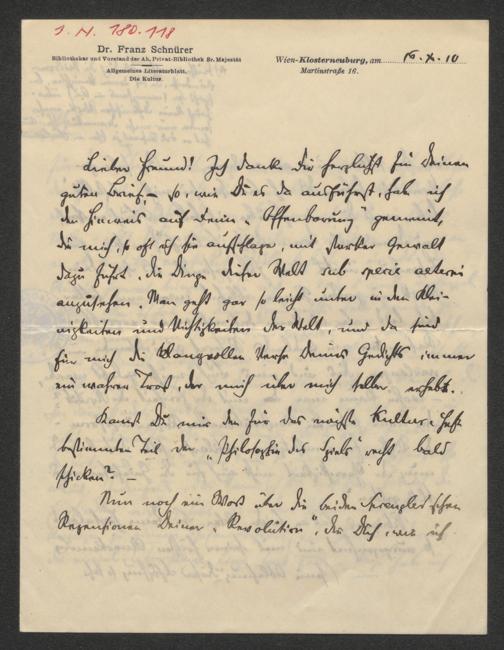 J. N. 180.118
Dr. Franz Schnürer
Bibliothekar und Vorstand der Ah. Privat-Bibliothek Sr. Majestät
Allgemeines Literaturblatt.
Die Kultur.
Wien-Klosterneuburg, am 16. X. 10
Martinstraße 16.
Lieber Freund! Ich danke Dir herzlichst für Deinen
guten Brief, – so, wie Du es da ausführst, hab ich
den Hinweis auf Deine „Offenbarung“ gemeint,
die mich, so oft ich sie aufschlage, mit starker Gewalt
dazu führt, die Dinge dieser Welt sub specie aeterni
anzusehen. Man geht gar so leicht unter in den Klei-
nigkeiten und Nichtigkeiten der Welt, und da sind
für mich die klangvollen Verse Deines Gedichts immer
ein wahrer Trost, der mich über mich selber erhebt.
Kannst Du mir den für das nächste Kultur-Heft
bestimmten Teil der „Philosophie des Spiels“ recht bald
schicken? –
Nun noch ein Wort über die beiden
Rezensionen Deiner „Revolution“, die Dich, wie ich